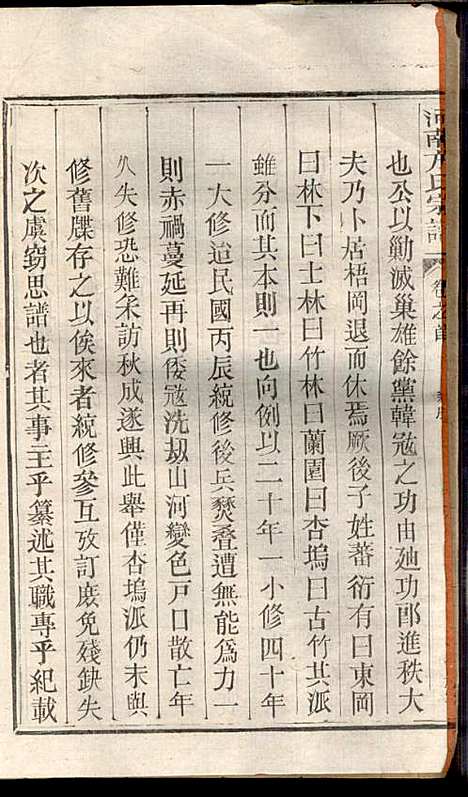 河南方氏宗譜 卷之首
也公以勦滅巢雄餘黨韓寇之功由廸功郎進秩大
夫乃卜居梧岡退而休焉厥後子姓蕃衍有曰東岡
曰林下曰士林曰竹林曰蘭園曰杏塢曰古竹其派
雖分而其本則一也向例以二十年一小修四十年
一大修迨民國丙辰統修後兵燹叠遭無能為力一
則赤禍蔓延再則倭寇洗刼山河變色戸口散亡年
久失修恐難采訪秋成遂興此舉僅杏塢派仍未與
修舊牒存之以俟來者統修參互攷訂庶免殘缺失
次之虞竊思譜也者其事主乎纂述其職專乎紀載